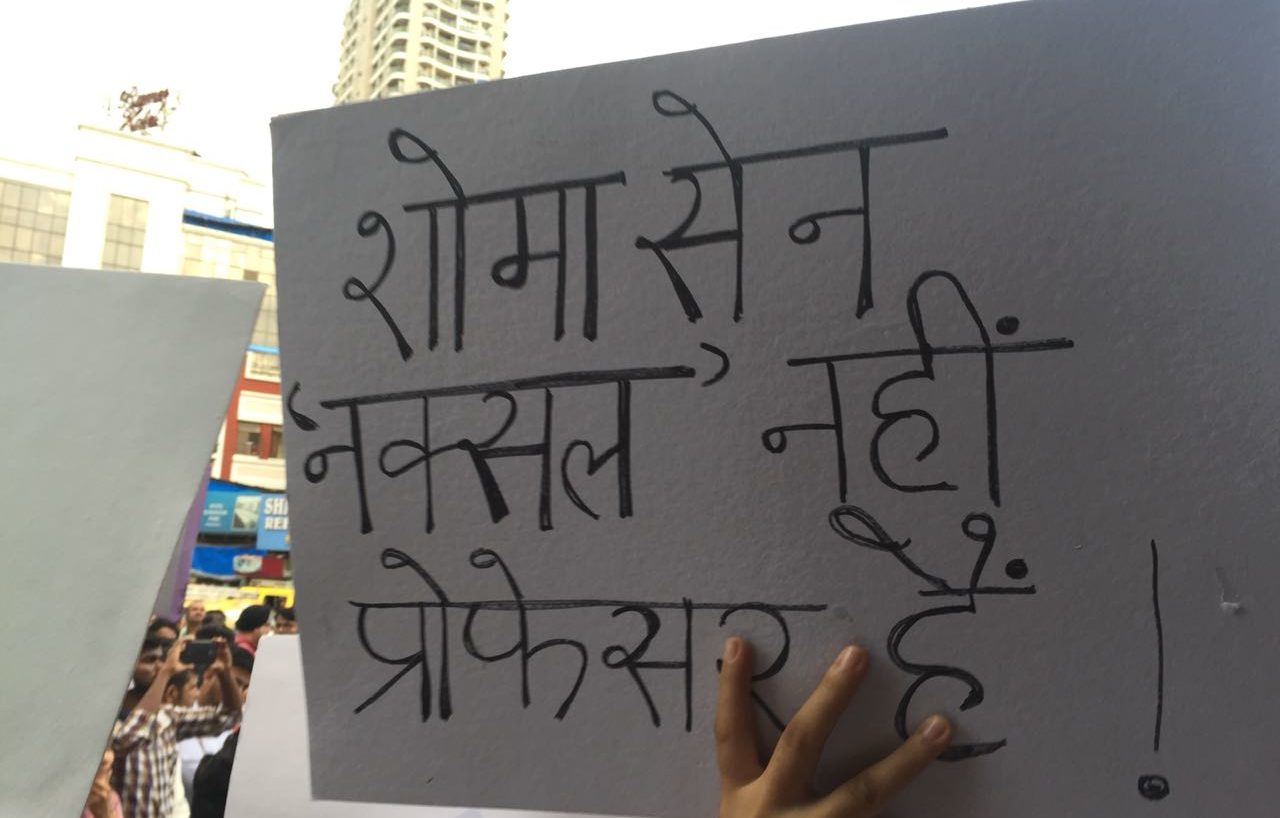 शोमा सेन
‘नक्सल’ नहीं
प्रोफेसर हैं !
SH
REL